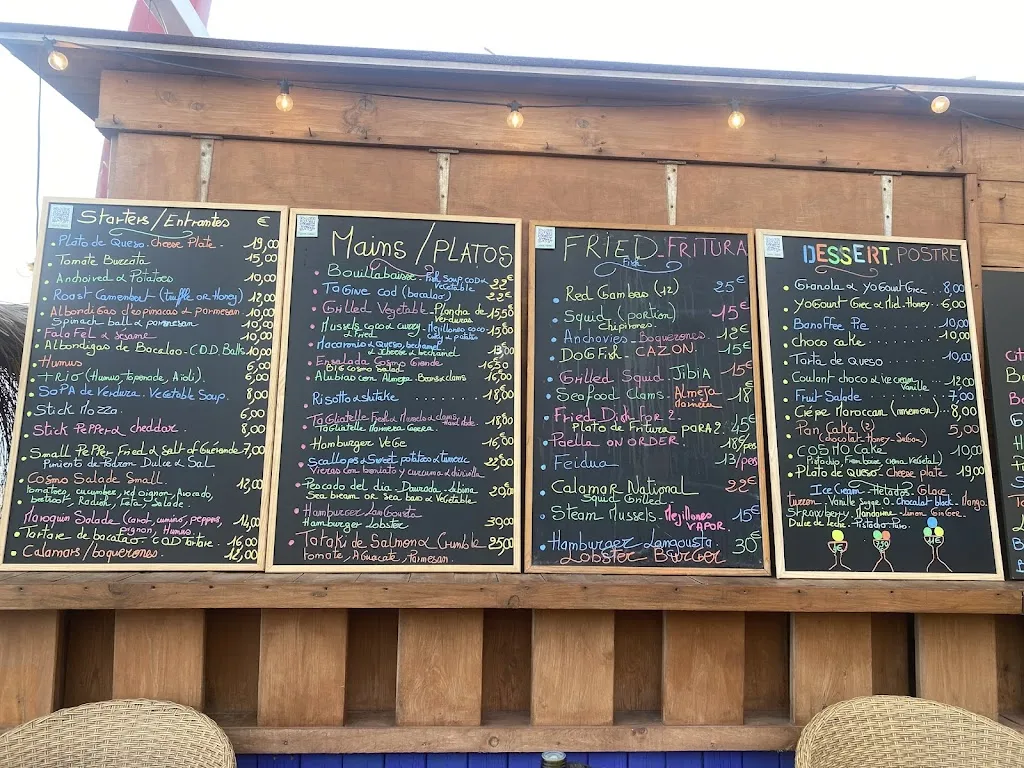 Starters/Entrantes €
Plato de Queso. Cheese Plate. 19,00
Tomate Burrata 15,00
Anchoived & Potatoes 10,00
Roast Camembert (truffle or Honey) 12,00
Albondigas d'espinacas & parmesan 10,00
Spinach ball & parmesan
Falafel & sesame 10,00
Albondigas de Bacalao. C.O.D. Balls 10,00
Humus 6,00
TRIO (Humus, Tapenade, Aïoli). 6,00
SoPA de Verdura. Vegetable Soup. 8,00
Stick Mozza. 6,00
Stick Pepper & cheddar. 8,00
Small Pepper Fried & Salt of Guérande 7,00
Pimiento de Padron Dulce & Sal
Cosmo Salade Small 12,00
Tomatoes, cucumber, red oignon, Avocado,
Radish, Feta, Salade.
Maroquin Salade (Carot, cumino, peppers, 14,00
oignon, Humus.
Tartare de bacalao. COD Tartare 16,00
Calamars/boquerones. 12,00
Mains/PLATOS
Bouillabaisse - Fish Soup, cod & 22€
Vegetable
TaGine cod (bacalao) 22€
Grilled Vegetable - Plancha de 15,50
Verduras
Mussels coco & curry - Mejillones coco 15,80
& Fried. curry & patatas
Macaronis & Queso, bechamel 13,00
& cheese & bechamel
Ensalada Cosmo Grande 16,50
BiG cosmo salad
Alubias con Almeja. Beans & clams 16,00
Risotto & shitake 18,00
Tagliatelle Fresh & Marinela & clams. Hand Made. 18,00
Tagliatelle Marinera Casera.
Hamburger VeGe 16,00
Scallops & Sweet potatoes & tumeric 22,00
Vieiras con boniato y curcuma & chirivilla
Pescado del dia. Daurada. Lubina 20,00
Sea bream or Sea bars & Vegetable
Hamburger LanGousta 39,00
Hamburger Lobster
Tataki de Salmon & Crumble 25,00
Tomate, AGuacate, Parmesan.
FRIED - FRITURA
Fish
Red Gambas (12) 25€
Squid (portion) 15€
Chipirones.
Anchovies - Boquerones. 12€
DoG Fish - CAZON. 15€
Grilled Squid - JIBIA 15€
Seafood Clams. Almeja 18€
Marinera
Fried Dish For 2
Plato de Fritura para 2. 45€
Paella ON ORDER. 18€/pers
Feidua 13/pers
Calamar National 22€
Squid Grilled
Steam Mussels. Mejillones 15€
VAPOR
Hamburger Langousta 30€
Lobster BurGer
DESSERT, POSTRE
Granola & YoGourt Grec 8,00
YoGourt Grec & Miel. Honey 6,00
Banoffee Pie 10,00
Choco cake 10,00
Tarta de Queso. 10,00
Coulant choco & ice cream 12,00
Vanille
Fruit Salade 7,00
Crépe Moroccan (msemen) 8,00
Pan Cake (2) 5,00
(chocolat-Honey-
COSMO Cake 10,00
Pistachio, Framboise (crema Vegetal)
Plato de Queso. cheese plate 19,00
Ice Cream - Helados. Glace
Vanille Chocolat black. Mango.
Strawberry. Mandarine. Limon GinGer.
Dulce de leche. Pistacho
4€ 7,50 11€